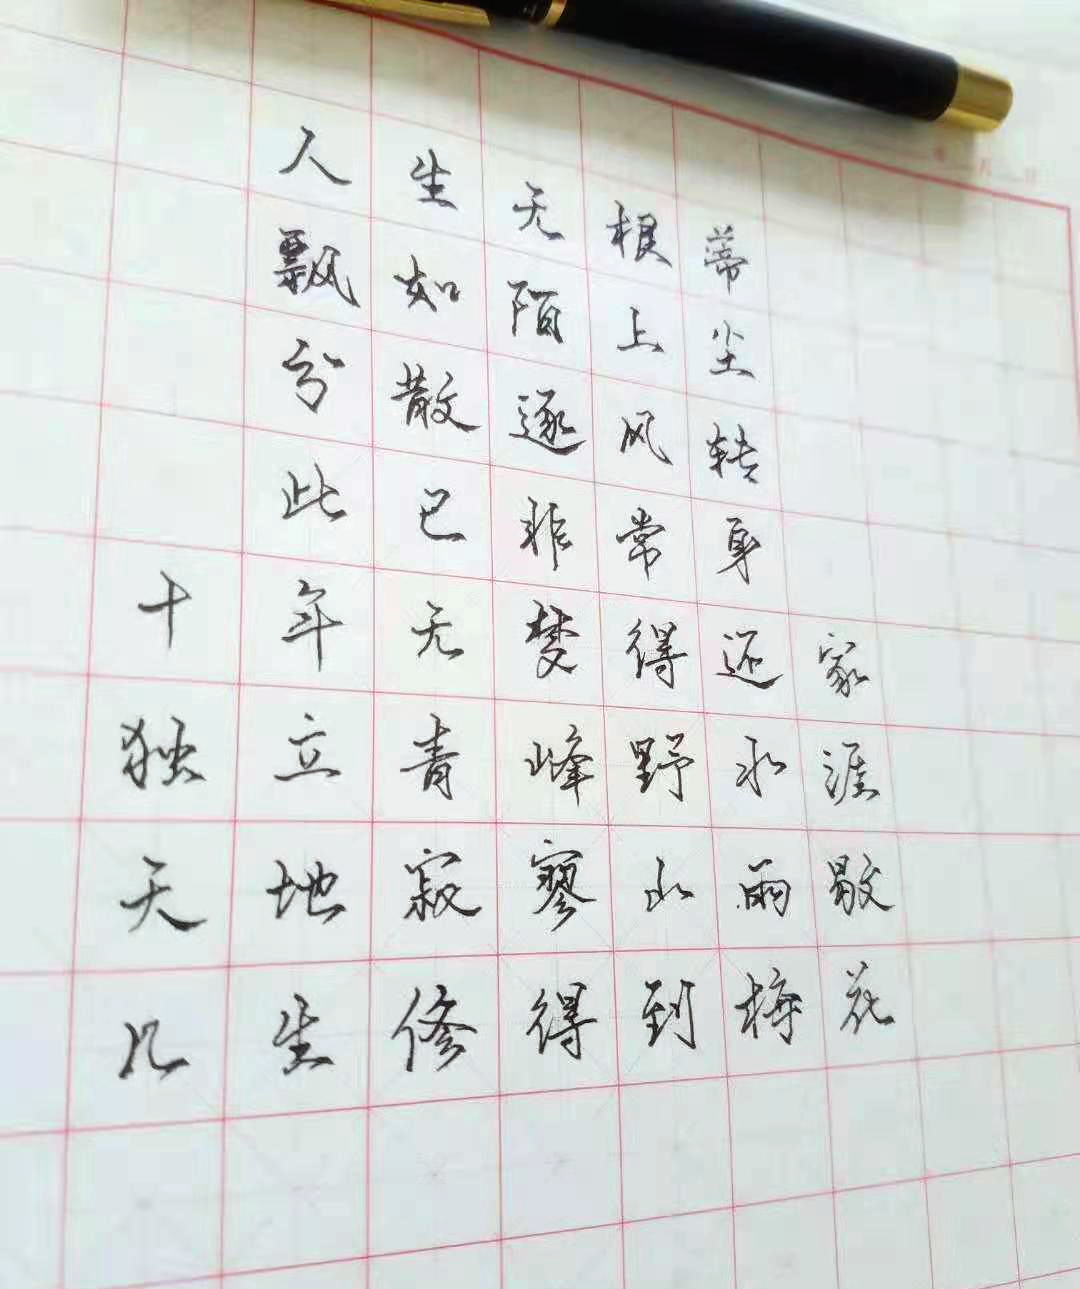 人生无根蒂
飘如陌上尘
分散逐风转
此已非常身
十年无梦得还家
独立青峰野水涯
天地寂寥山雨歇
几生修得到梅花